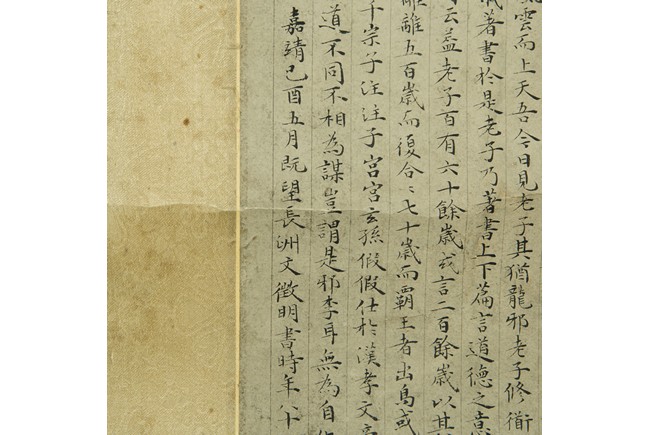 雲而上天吾今日見老子其猶龍邪老子修衜
著書於是老子乃著書上下篇言道德之意
云益老子百有六十餘歲或言二百餘歲以其
離五百歲而復合〻七十歲而霸王者出焉或
干宗子注注子宫宫玄孫假假仕於漢孝文
道不同不相為謀豈謂是邪李耳無為自
嘉靖己酉五月既望長洲文徵明書時年八十